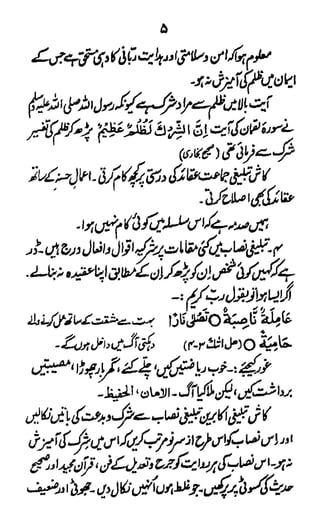 ۵
معلوم ہوا کہ امن و سلامتی اور ہدایت ربانی کا وہی مستحق ہے جس کے
ایمان میں ظلم کی آمیزش نہ ہو۔
آیت بالا میں ظلم سے مراد شرک ہے کیونکہ رسول اللہ صلی اللہ علیہ وسلم
نے سورۃ لقمان کی آیت اِنَّ الشِّرْكَ لَظُلْمٌ عَظِيْمٌ پڑھ کر ظلم کی تفسیر
شرک سے فرمائی تھی (صحیح بخاری)
کاش تبلیغی جماعت عقائد کی درستی پر کچھ کام کرتی۔ اعمالِ حسنہ کے ساتھ
عقائد کی بھی اصلاح کرتی۔
ہمیں صدمہ ہے کہ اس سلسلہ میں کوئی کام نہیں ہوا۔
۳۔ تبلیغی نصاب میں کئی مقامات پر شرکیہ اقوال و افعال درج ہیں۔ ڈر
ہے کہ کہیں کوئی شخص ان کو پڑھ کر ان کے مطابق اپنا عقیدہ نہ بنا لے۔
اگر ایسا ہوا تو بقول ربّ کریم :۔
عَامِلَةٌ نَّاصِبَةٌ ○ تَصْلٰى نَارًا بہت سے مشقت کے ساتھ عمل کرنے والے
حَامِيَةً ○ دہکتی آگ میں داخل ہوں گے۔
غور کیجئے :۔ خوب ریاضتیں کیں، چلّے کئے، گھر بار چھوڑا، مصیبتیں
برداشت کیں، لیکن ملا کیا آگ۔ الامان، الحفیظ۔
کاش تبلیغی اکابرین تبلیغی نصاب سے شرک و بدعت کی باتیں نکالیں
اور اس نصاب کو اس طرح از سر نو مرتب کریں کہ اس میں شرک کی آمیزش
نہ ہو۔ اس نصاب کی ہر روایت کو جرح و تعدیل کے فن، قرآن مجید اور صحیح
حدیث کی کسوٹی پر پرکھیں۔ جو غلط ہوں انہیں نکال دیں۔ جھوٹی اور ضعیف